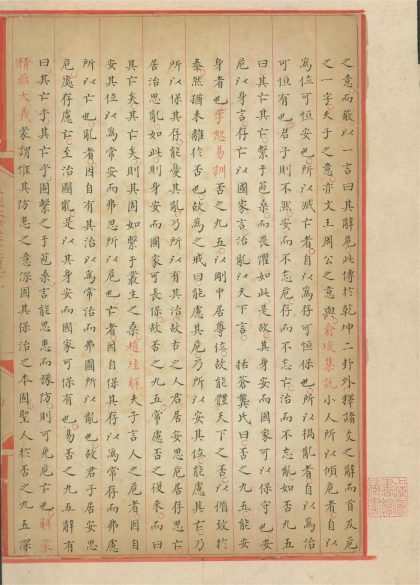 之意而蔽以一言曰其辭危此傳於乾坤二卦外釋諸爻之辭而首及危
之一字夫子之意亦文王周公之意與俞琰集說小人所以傾危者自以
為位可恒安也所以滅亡者自以為存可恒保也所以禍亂者自以為治
可恒有也君子則不然安而不忘危存而不忘亡治而不忘亂如否九五
曰其亡其亡繫于苞桑而畏懼如此是故其身安而國家可以保守也安
危以身言存亡以國家言治亂以天下言 括蒼龔氏曰否之九五能安
身者也李恕易訓否之九五以剛中居尊位故能體天下之否以循致於
泰然猶未離於否也故為之戒曰能慮其危乃所以安其位能慮其亡乃
所以保其存能憂其亂乃所以有其治故古之人君居安思危居存思亡
居治思亂如此則身安而國家可長保故否之九五常慮否之復來而曰
其亡矣其亡矣則其固如繫于叢生之桑趙珪解夫子言人之危者因自
安其位以為常安而弗思所以危也亡者因自保其存以為常存而弗慮
所以亡也亂者因自有其治以為常治而弗圖所以亂也故君子居安思
危處存慮亡至治圖亂是以其身安而國家可保有也易否之九五辭有
曰其亡乎其亡乎固繫之于苞桑言能思患而豫防則可免危亡也解蒙
精蘊大義蒙謂惟其防患之意深固其保治之本固聖人於否之九五深